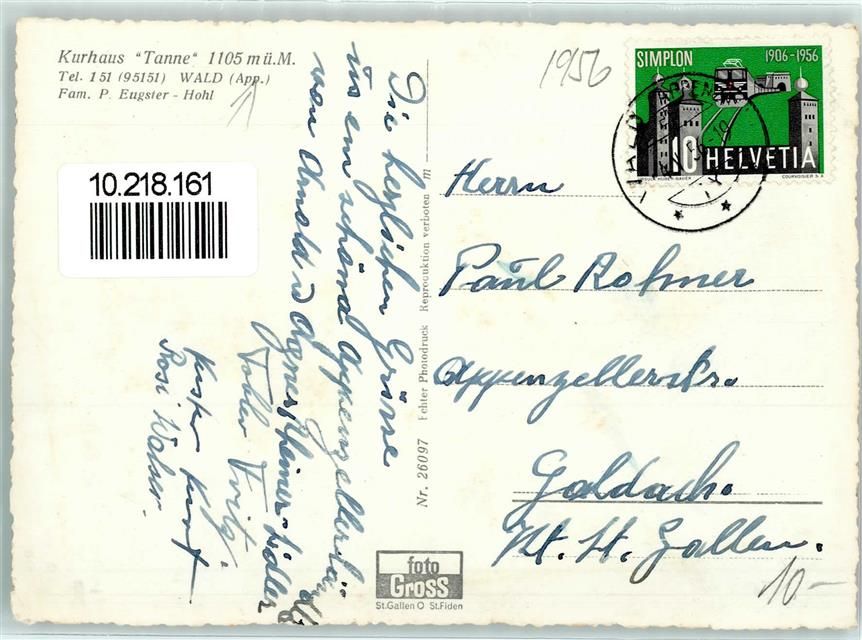 Kurhaus "Tanne" 1105 m ü. M.
Tel. 1 51 (95151) WALD (App.)
Fam. P. Eugster - Hohl
10.218.161
1956
SIMPLON 1906-1956
10 HELVETIA
COURVOISIER S.A.
WALD
Die herzlichen Grüsse
üs em schöne Appenzellerländli
von Arnold u Agnes
Tobler Fritz.
Kurt
Rosi Walser.
Nr. 26097 Echter Photodruck Reproduktion verboten m
Herrn
Paul Rohner
Appenzellerstr.
Goldach.
Kt. St. Gallen.
foto
Gross
St. Gallen O St. Fiden
10.-